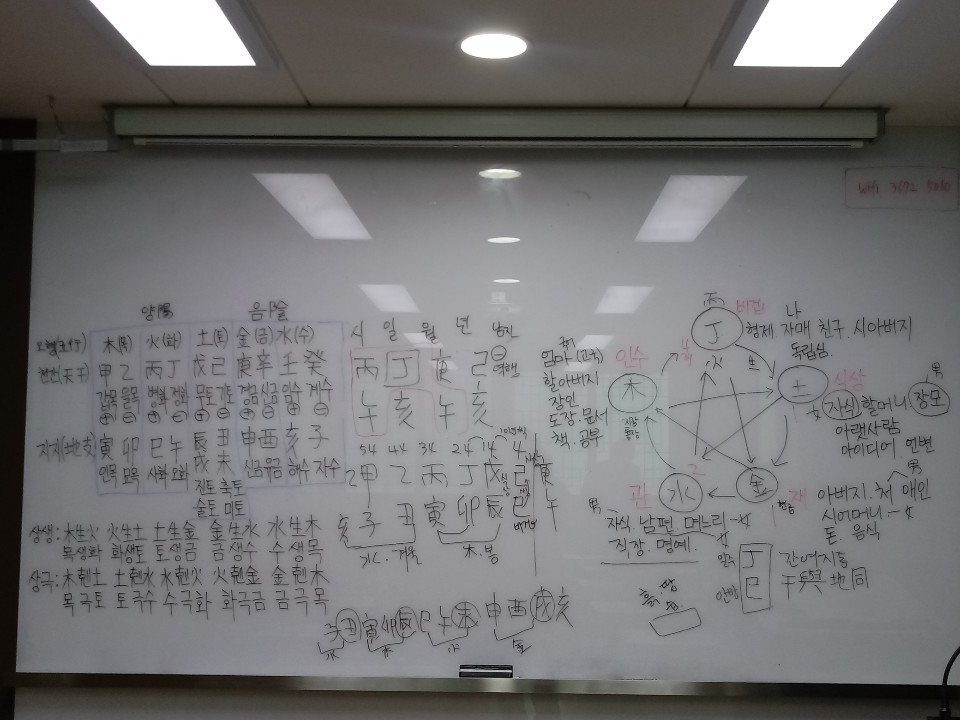 양陽 음陰
木(목) 火(화) 土(토) 金(금) 水(수)
천간(天干) 甲 乙 丙 丁 戊 己 庚 辛 壬 癸
갑목 을목 병화 정화 무토 기토 경금 신금 임수 계수
⊕ ⊖ ⊕ ⊖ ⊕ ⊖ ⊕ ⊖ ⊕ ⊖
지지(地支) 寅 卯 巳 午 辰 丑 申 酉 亥 子
戌 未
인목 묘목 사화 오화 신금 유금 해수 자수
진토 축토
술토 미토
상생: 木生火 火生土 土生金 金生水 水生木
목생화 화생토 토생금 금생수 수생목
상극: 木剋土 土剋水 水剋火 火剋金 金剋木
목극토 토극수 수극화 화극금 금극목
시 일 월 년 남자
丙 丁 庚 己 ⊖
역행
午 亥 午 亥
54 44 34 24 14 4
甲 乙 丙 丁 戊 己 庚
子 丑 寅 卯 辰 巳 午
亥
水.겨울 木.봄
子 丑 寅 卯 辰 巳 午 未 申 酉 戌 亥
水 木 火 金
엄마
할아버지
장인
도장.문서
책.공부
인수 木
丙
丁 비겁 나
형제 자매 친구.시아버지
독립심.
火 生
土 식상
男
女 (자식) 할머니 장모
아랫사람
아이디어. 언변
金 재
男
아버지. 처 애인
시어머니 - 女
돈. 음식
관 水
男 자식. 남편 며느리 - 女
직장. 명예.
일주 丁 간여지동
안방 巳 干與地同
흙.땅